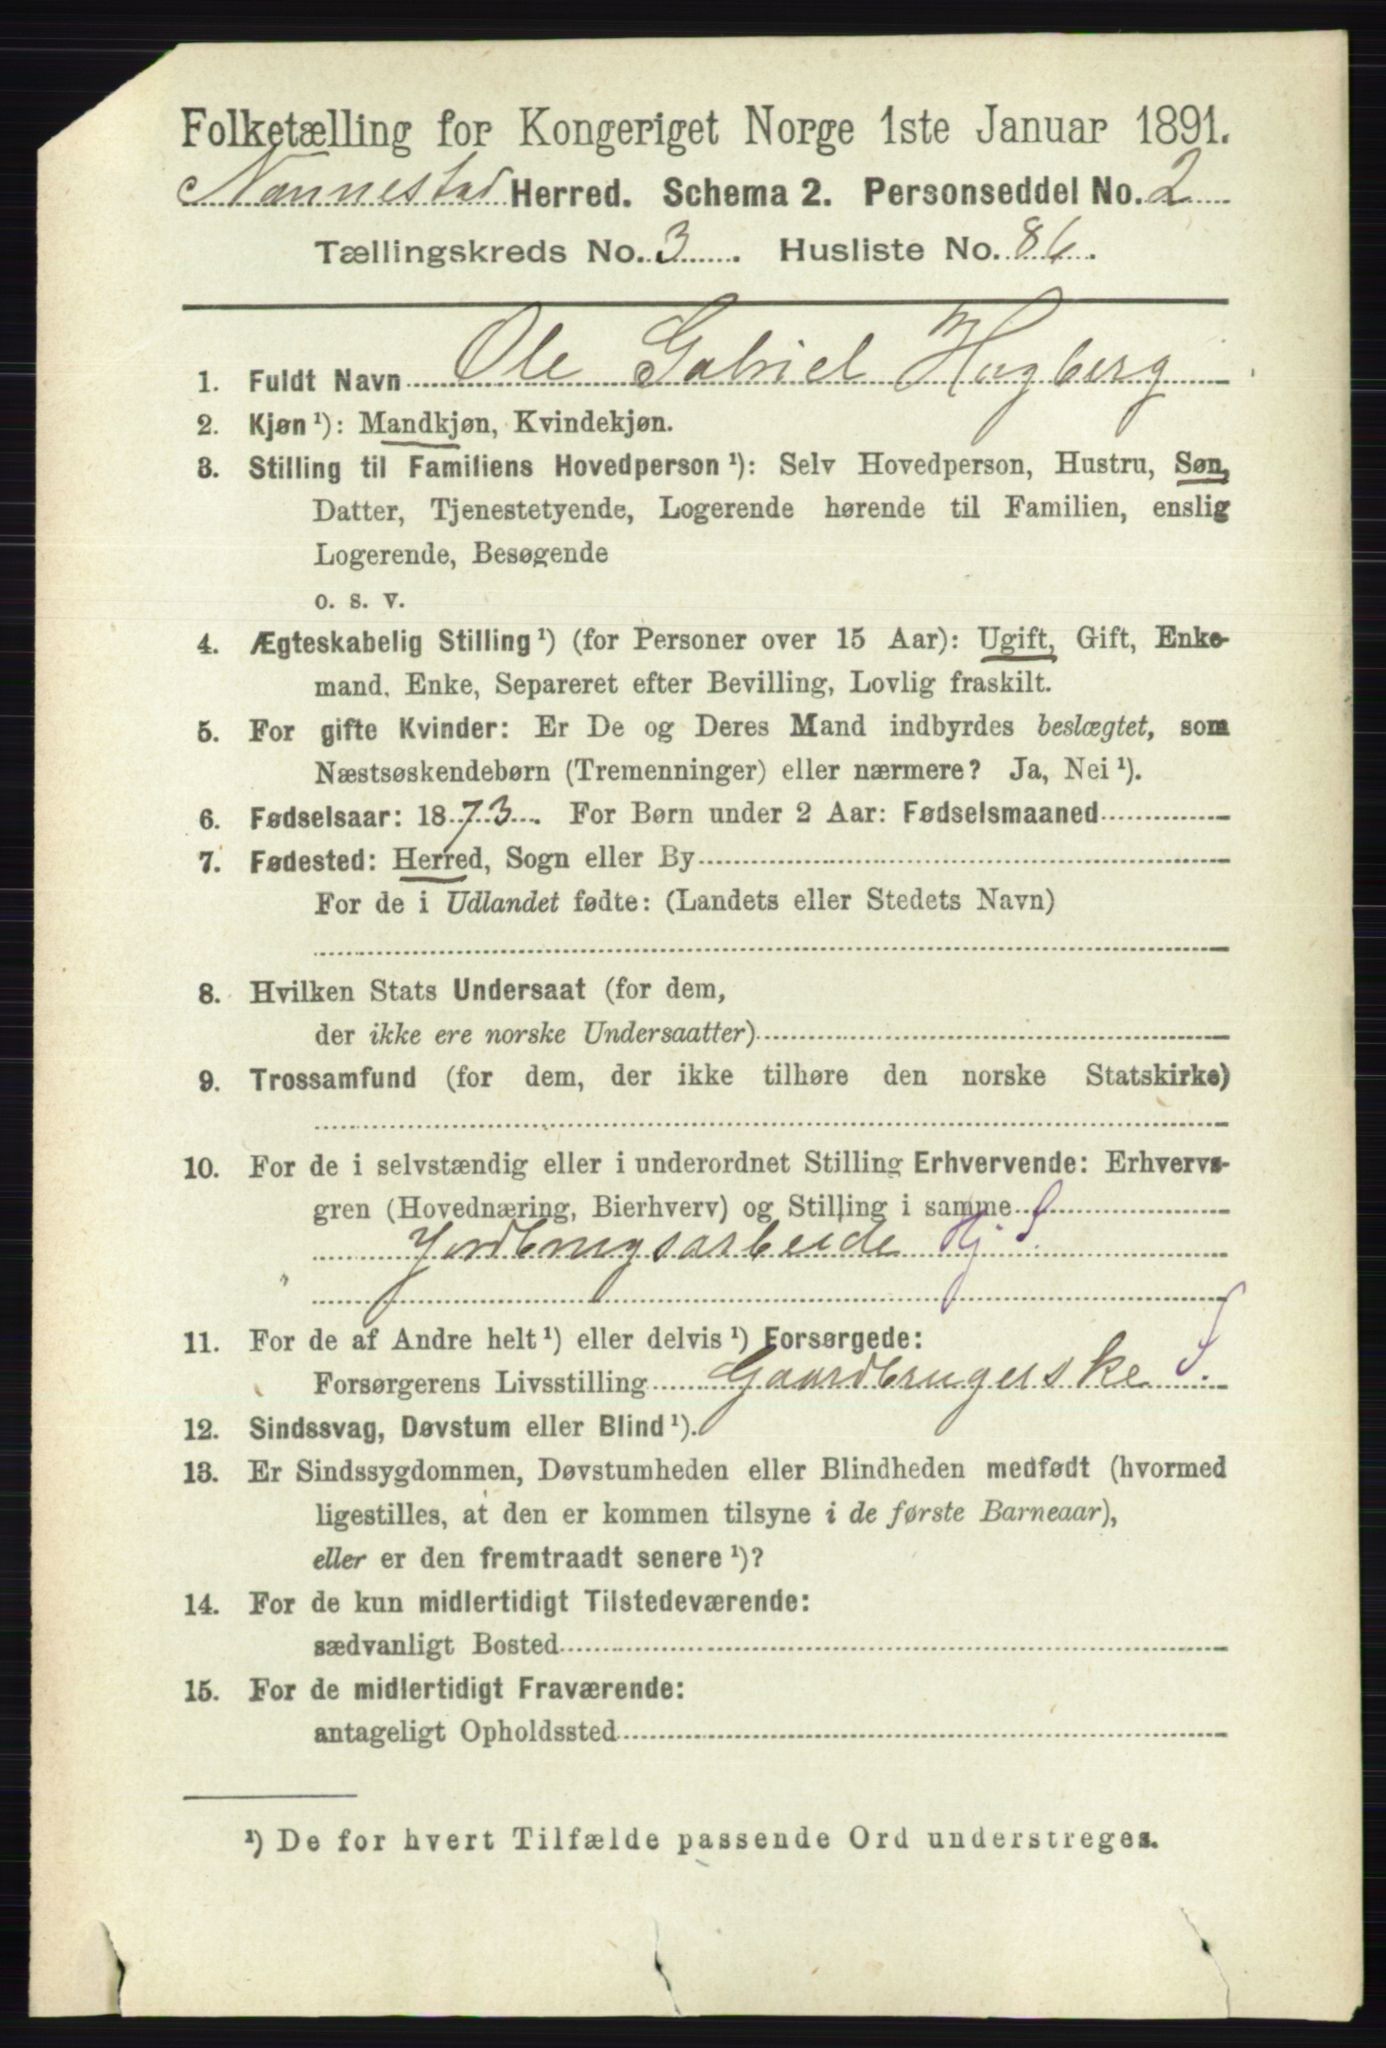 Folketælling for Kongeriget Norge 1ste Januar 1891.
Nannestad Herred. Schema 2. Personseddel No. 2
Tællingskreds No. 3. Husliste No. 86.
1. Fuldt Navn Ole Gabriel Haugberg
2. Kjøn¹): Mandkjøn, Kvindekjøn.
3. Stilling til Familiens Hovedperson¹): Selv Hovedperson, Hustru, Søn,
Datter, Tjenestetyende, Logerende hørende til Familien, enslig
Logerende, Besøgende
o. s. v.
4. Ægteskabelig Stilling¹) (for Personer over 15 Aar): Ugift, Gift, Enke-
mand, Enke, Separeret efter Bevilling, Lovlig fraskilt.
5. For gifte Kvinder: Er De og Deres Mand indbyrdes beslægtet, som
Næstsøskendebørn (Tremenninger) eller nærmere? Ja, Nei¹).
6. Fødselsaar: 1873. For Børn under 2 Aar: Fødselsmaaned
7. Fødested: Herred, Sogn eller By
For de i Udlandet fødte: (Landets eller Stedets Navn)
8. Hvilken Stats Undersaat (for dem,
der ikke ere norske Undersaatter)
9. Trossamfund (for dem, der ikke tilhøre den norske Statskirke)
10. For de i selvstændig eller i underordnet Stilling Erhvervende: Erhvervs-
gren (Hovednæring, Bierhverv) og Stilling i samme
Jordbrugsarbeide Hj S.
11. For de af Andre helt¹) eller delvis¹) Forsørgede:
Forsørgerens Livsstilling Gaardbrugerske S.
12. Sindssvag, Døvstum eller Blind¹).
13. Er Sindssygdommen, Døvstumheden eller Blindheden medfødt (hvormed
ligestilles, at den er kommen tilsyne i de første Barneaar),
eller er den fremtraadt senere¹)?
14. For de kun midlertidigt Tilstedeværende:
sædvanligt Bosted
15. For de midlertidigt Fraværende:
antageligt Opholdssted
¹) De for hvert Tilfælde passende Ord understreges.